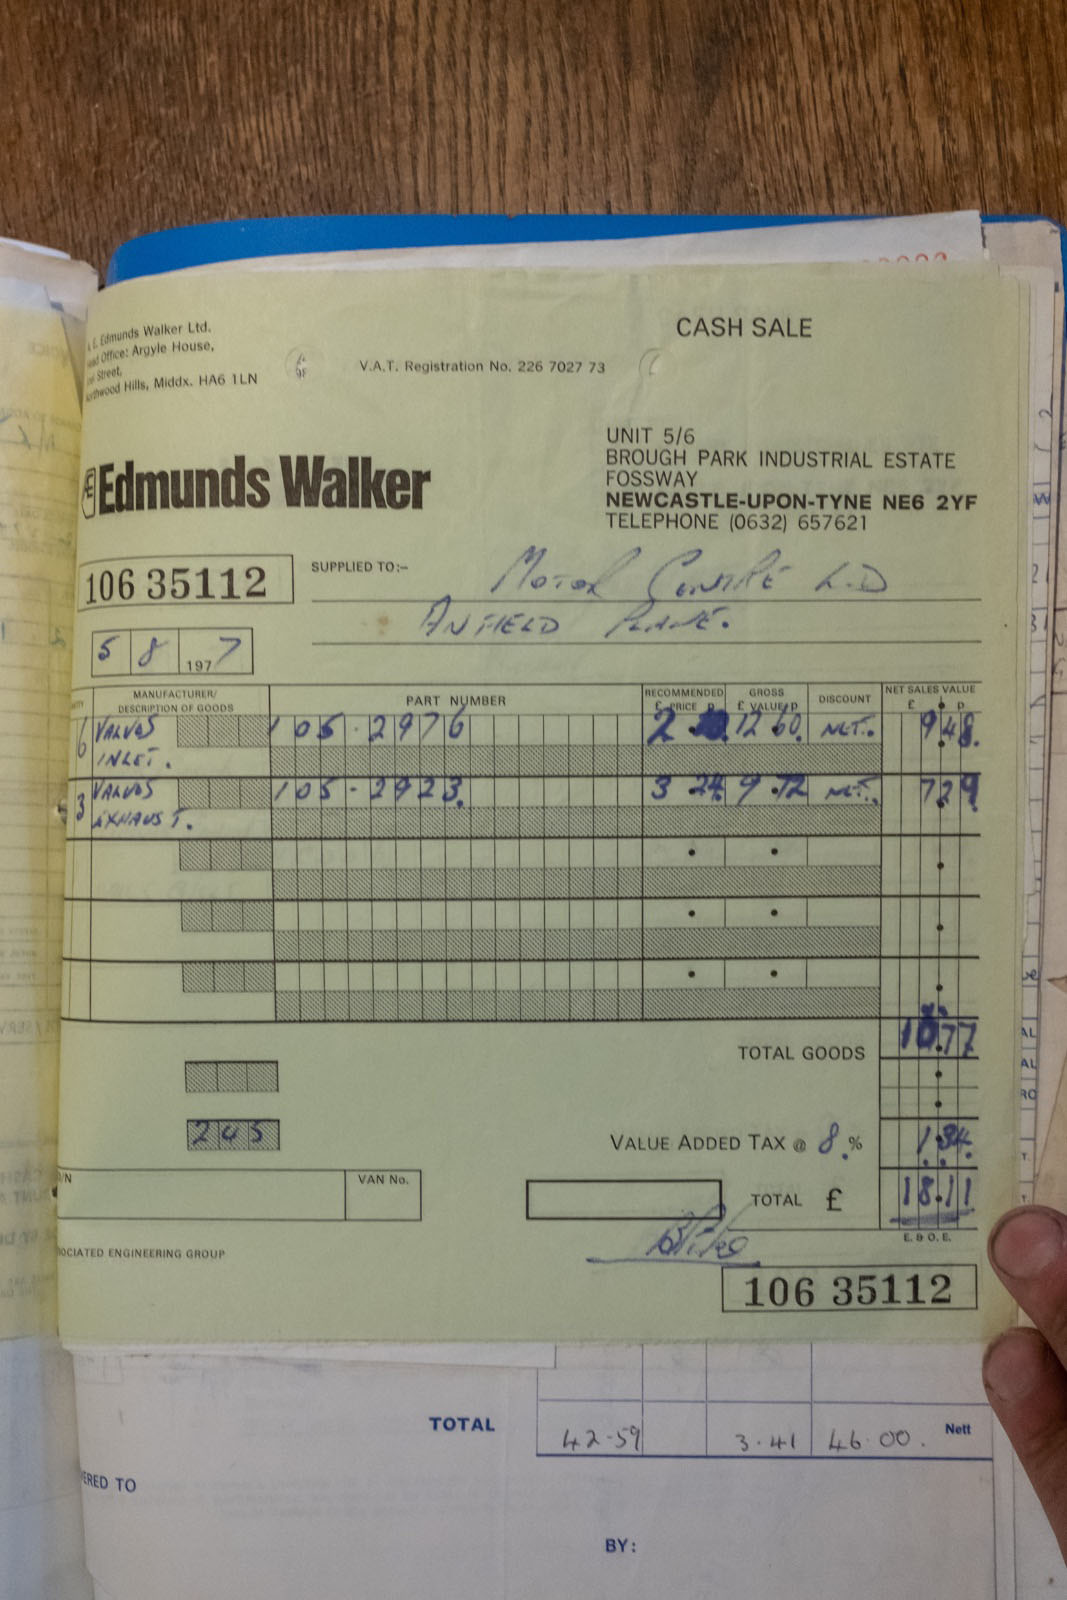 Edmunds Walker Ltd.
Office: Argyle House,
Street,
Northwood Hills, Middx. HA6 1LN
V.A.T. Registration No. 226 7027 73
CASH SALE
Edmunds Walker
UNIT 5/6
BROUGH PARK INDUSTRIAL ESTATE
FOSSWAY
NEWCASTLE-UPON-TYNE NE6 2YF
TELEPHONE (0632) 657621
106 35112
SUPPLIED TO:-
MOTOR CENTRE L.D
ANFIELD PLANE.
5 8 1977
MANUFACTURER/ DESCRIPTION OF GOODS PART NUMBER RECOMMENDED £ PRICE p. GROSS £ VALUE p DISCOUNT NET SALES VALUE £ p.
6 VALVES 105-2976 2 12 60. NET. 9 48.
INLET.
3 VALVES 105-2923. 3 24 9.72 NET. 7 29
EXHAUST.
TOTAL GOODS 77
205
VALUE ADDED TAX @ 8.% 1.34.
VAN No.
TOTAL £ 18.11
E. & O. E.
OCIATED ENGINEERING GROUP
106 35112
TOTAL 42-59 3.41 46.00. Nett
ERED TO
BY: